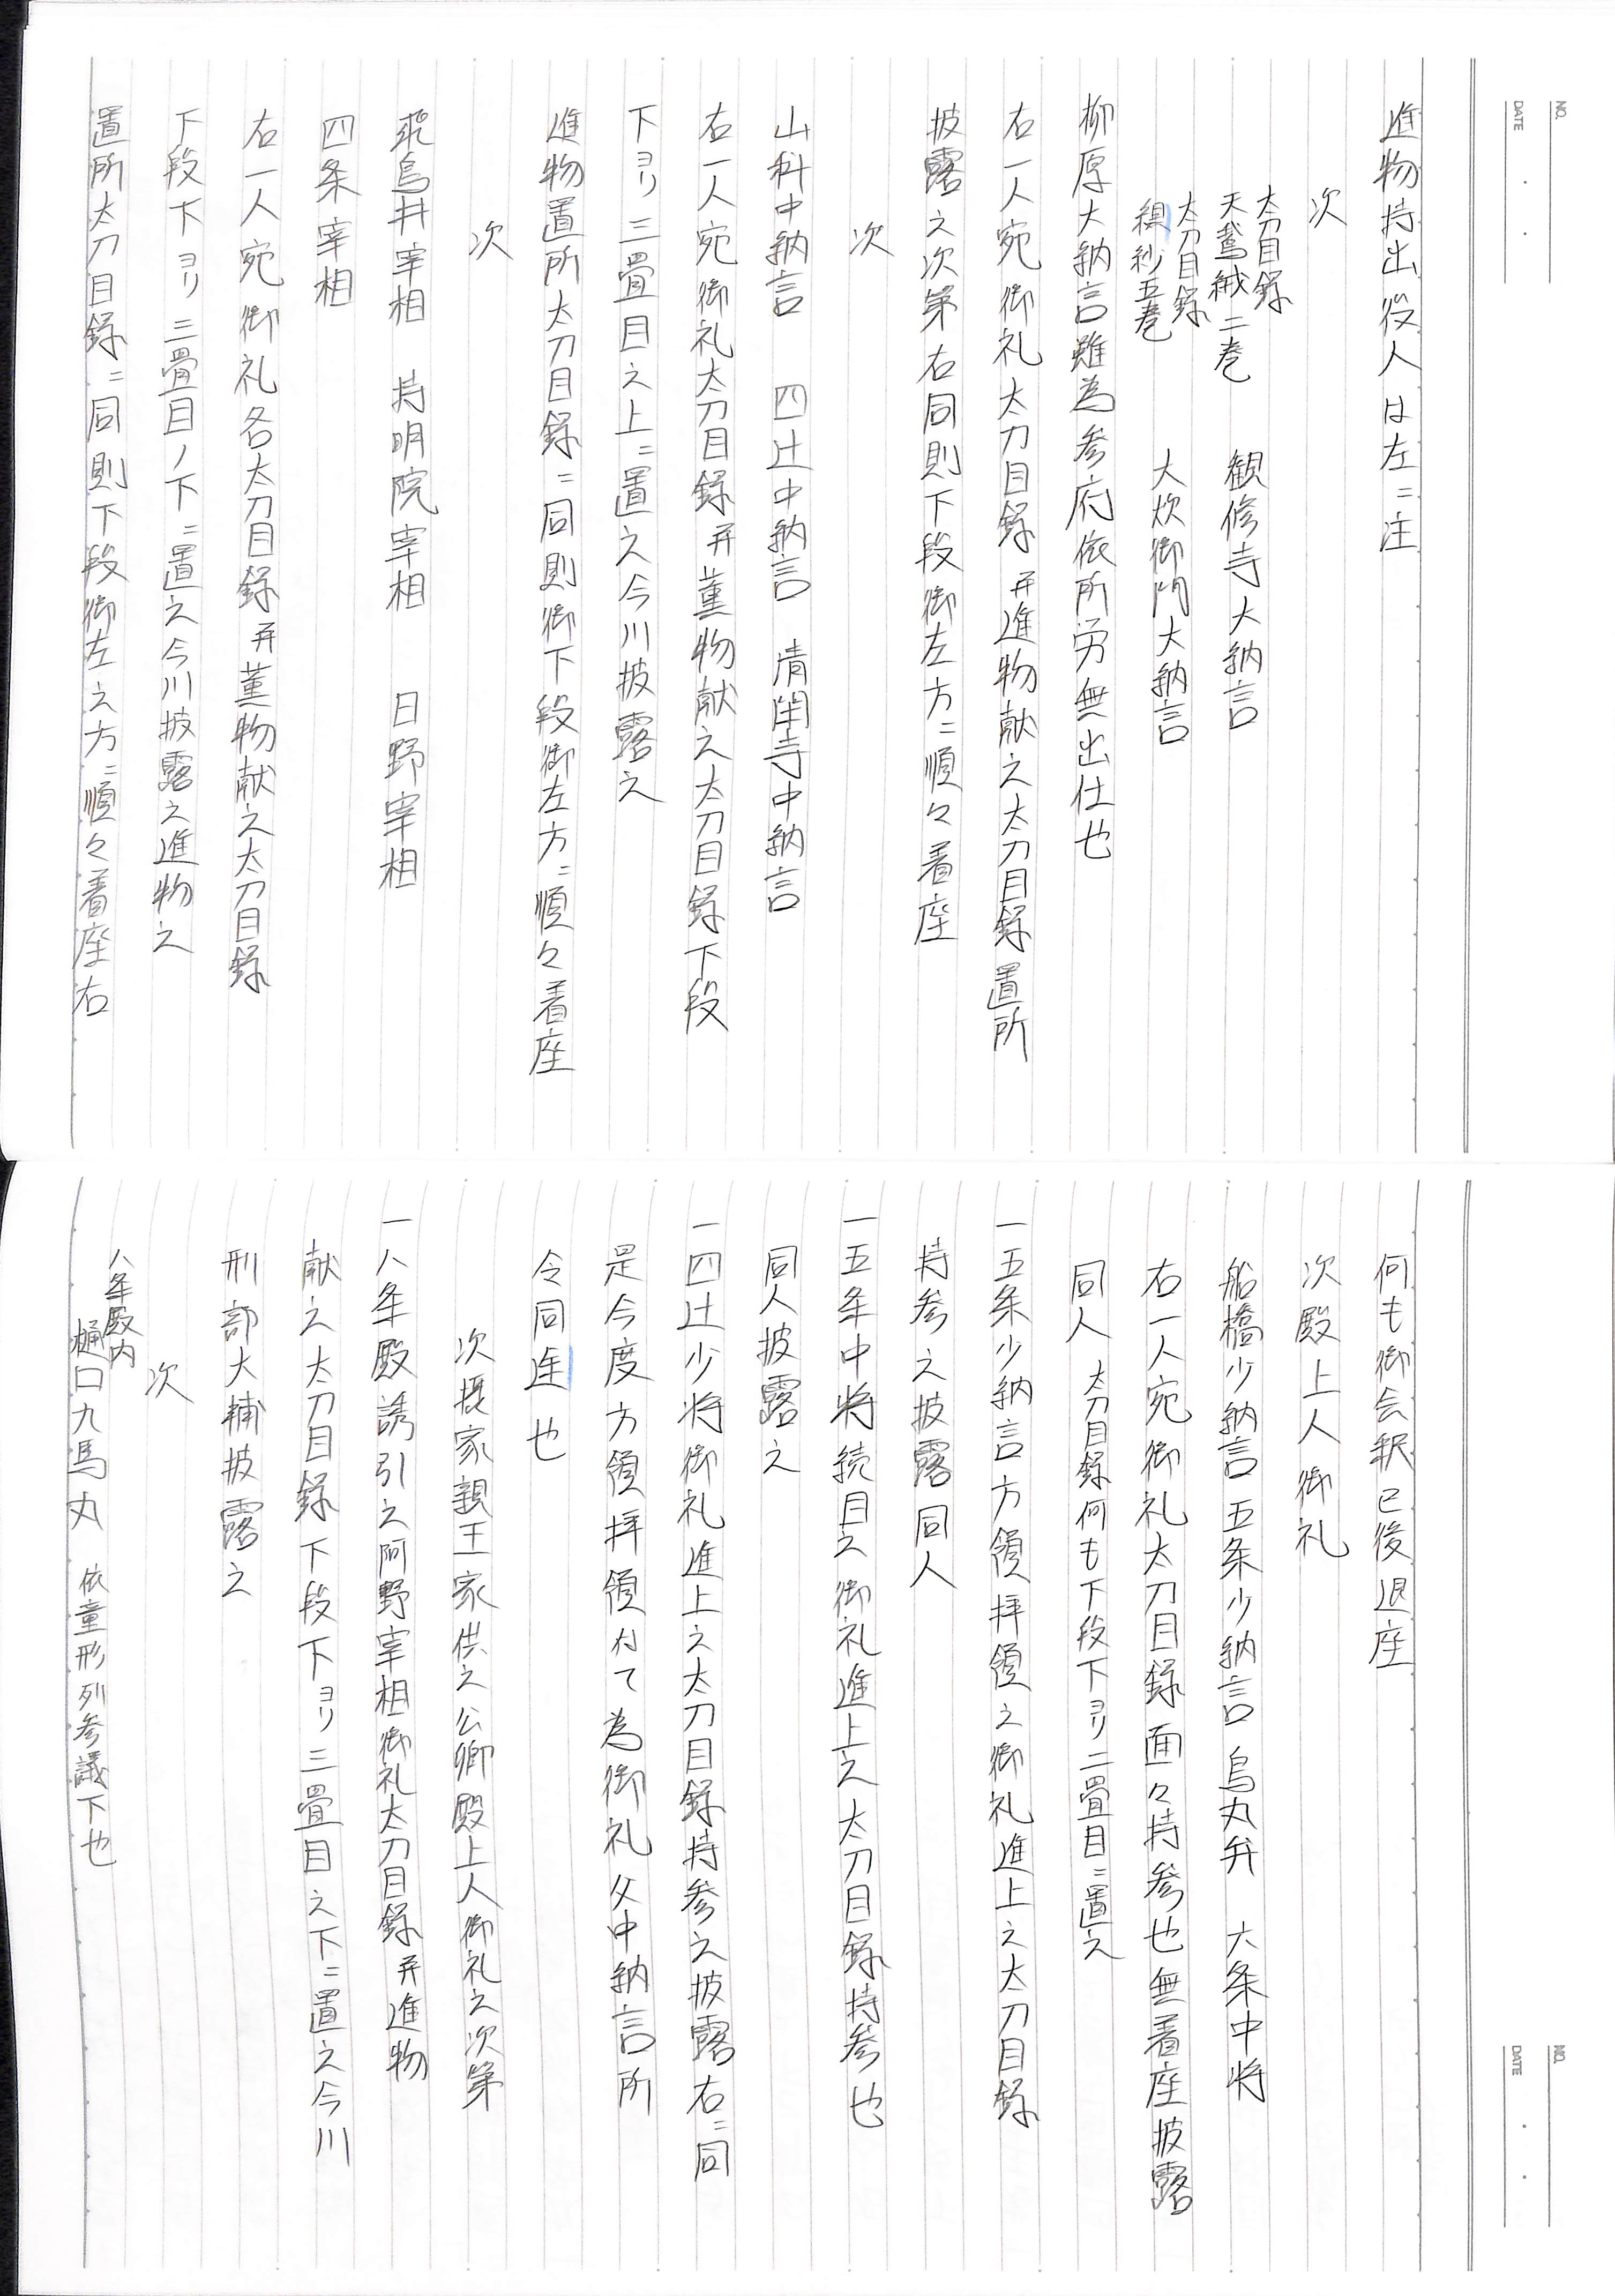 進物持出役人は左ニ注
次
太刀目録
天鵞絨二巻　観修寺大納言
太刀目録
縜紗五巻　大炊御門大納言
柳原大納言雖為参府依所労無出仕也
右一人宛御礼太刀目録并進物献之太刀目録置所
披露之次第右同則下段御左方ニ順々着座
次
山科中納言　四辻中納言　清閑寺中納言
右一人宛御礼太刀目録并薫物献之太刀目録下段
下ヨリ三畳目之上ニ置之今川披露之
進物置所太刀目録ニ同則御下段御左方ニ順々着座
次
飛鳥井宰相　持明院宰相　日野宰相
四条宰相
右一人宛御礼各太刀目録并薫物献之太刀目録
下段下ヨリ三畳目ノ下ニ置之今川披露之進物之
置所太刀目録ニ同則下段御左之方ニ順々着座右
何も御会釈已後退座
次殿上人御礼
船橋少納言　五条少納言　烏丸弁　六条中将
右一人宛御礼太刀目録面々持参也無着座披露
同人　太刀目録何も下段下ヨリ二畳目ニ置之
一五条少納言方領拝領之御礼進上之太刀目録
持参之披露同人
一五条中将続目之御礼進上之太刀目録持参也
同人披露之
一四辻少将御礼進上之太刀目録持参之披露右ニ同
是今度方領拝領付て為御礼父中納言所
令同進也
次摂家親王家供之公卿殿上人御礼之次第
一八条殿誘引之阿野宰相御礼太刀目録并進物
献之太刀目録下段下ヨリ三畳目之下ニ置之今川
刑部大輔披露之
次
八条殿内
樋口九馬丸　依童形列参議下也